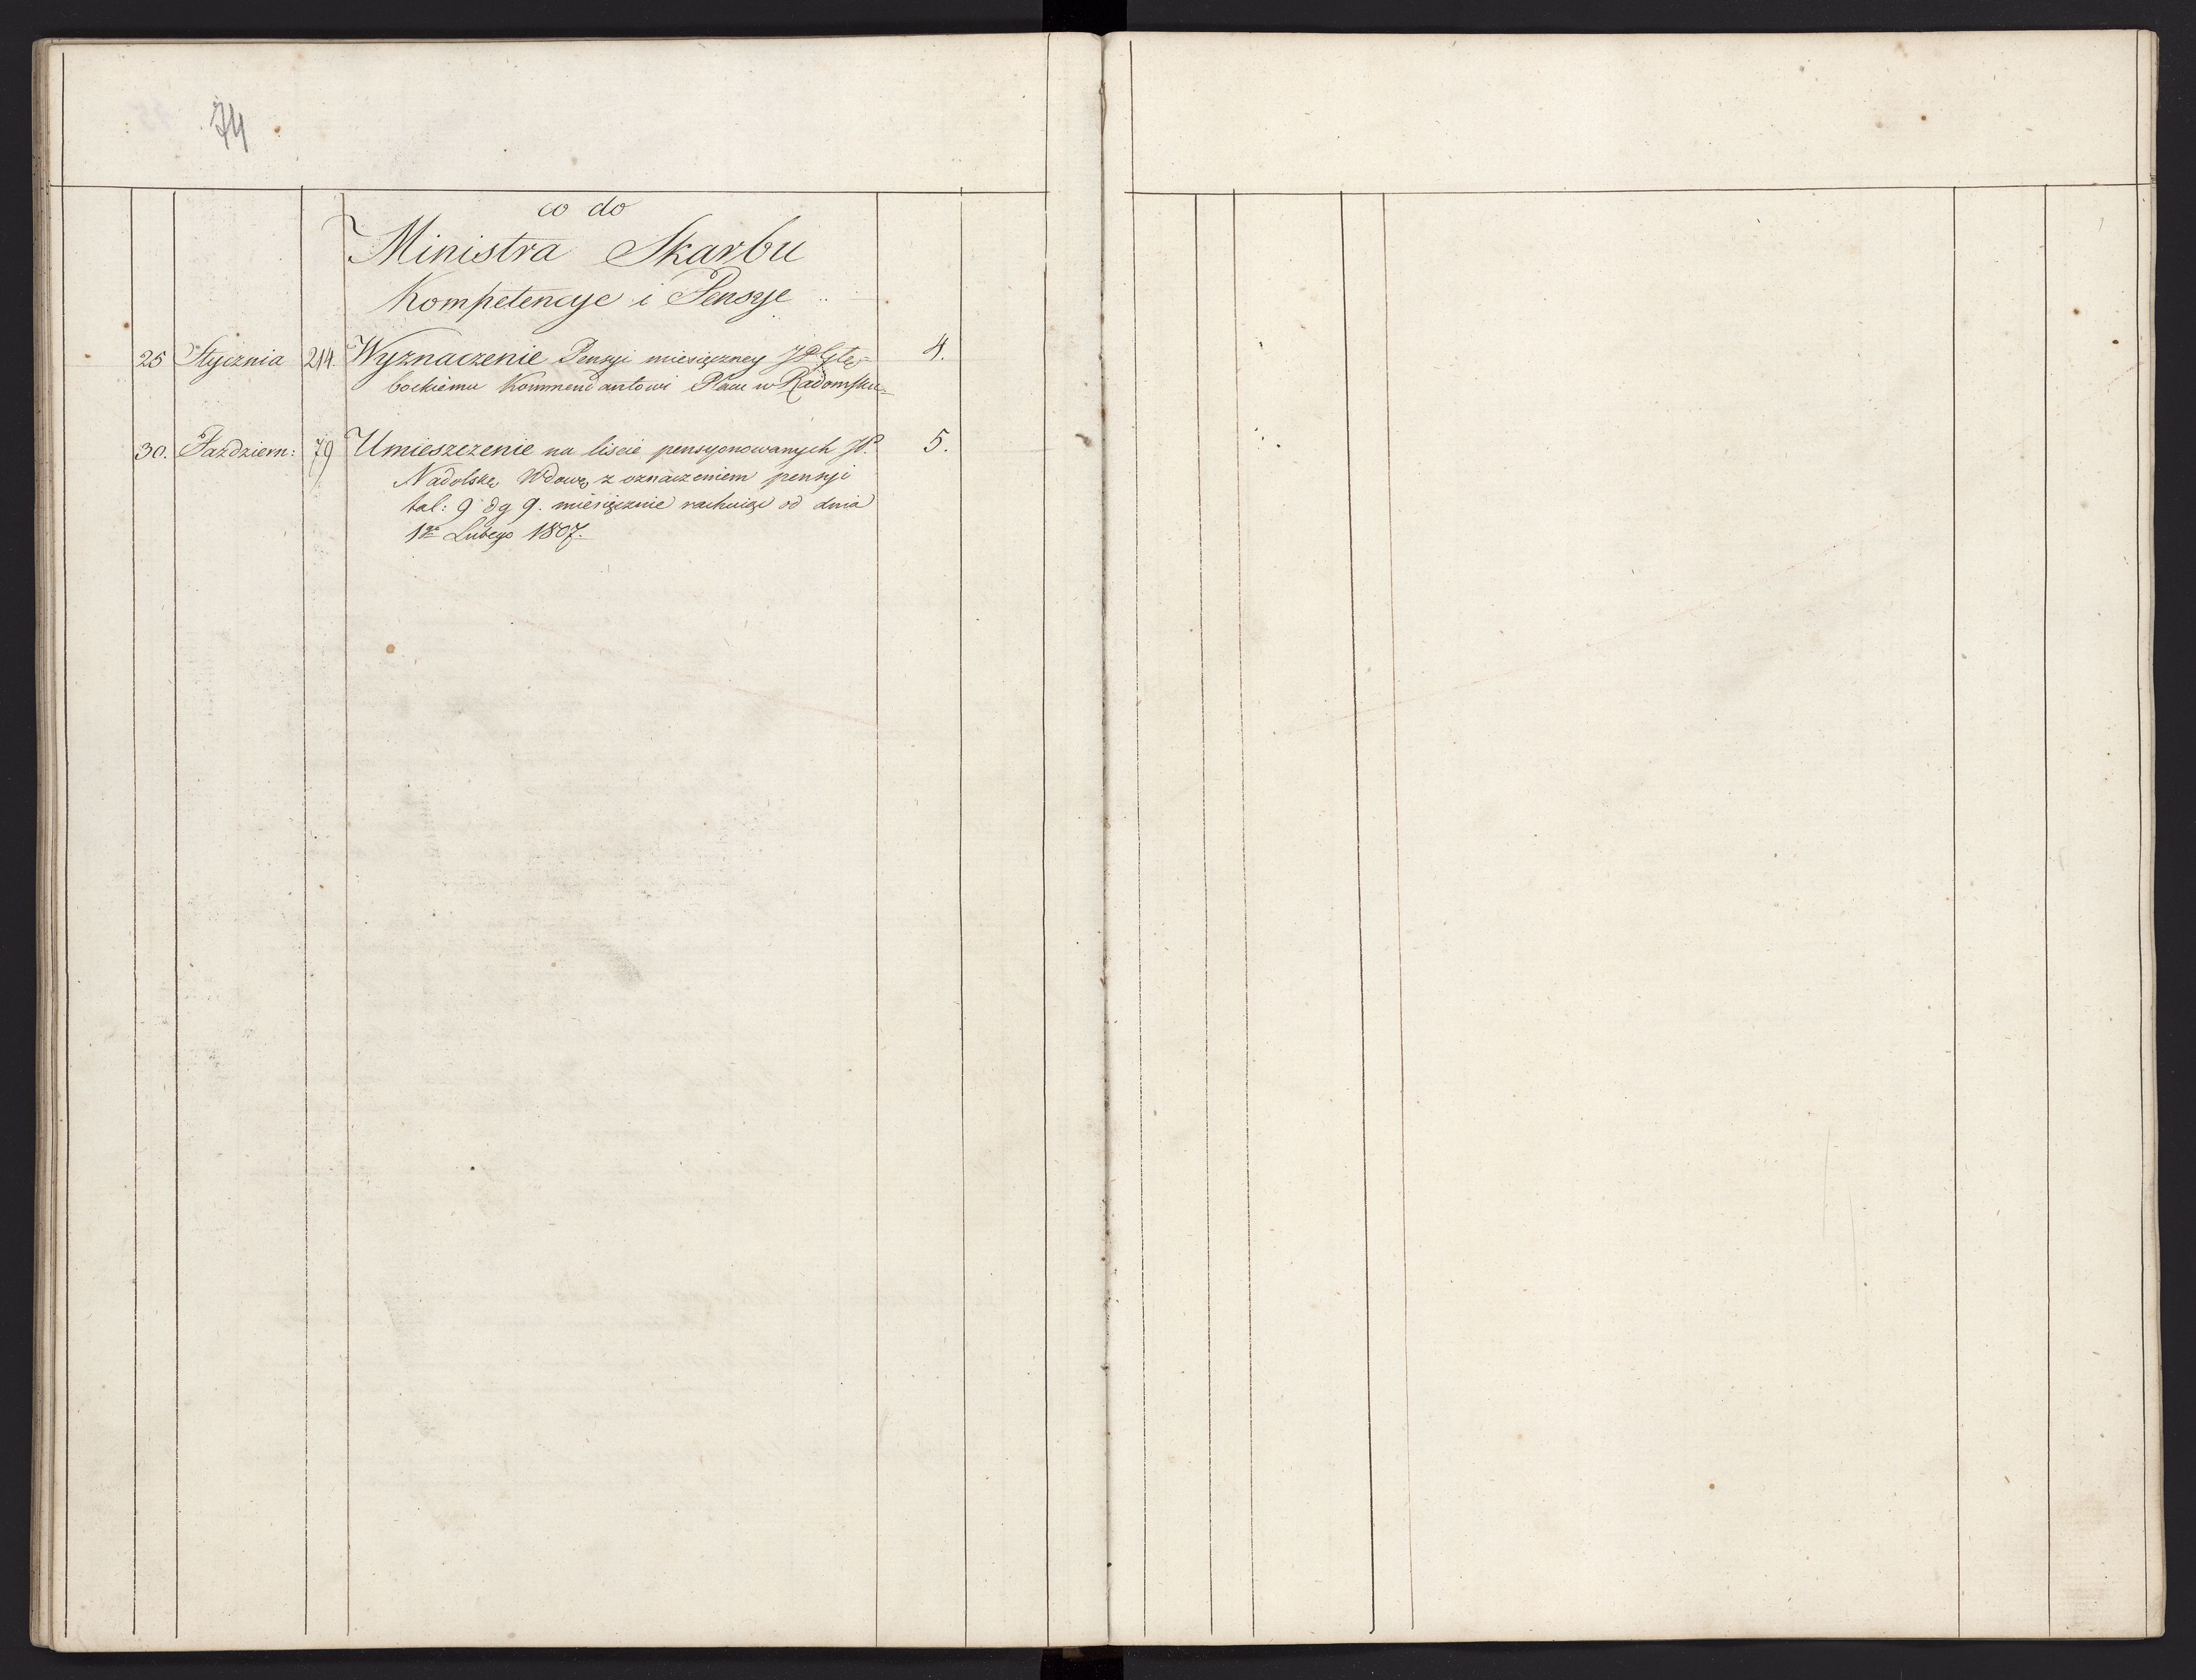 74
co do
Ministra Skarbu
Kompetencye i Pensye
25 Stycznia 214. Wyznaczenie Pensyi miesięczney JP Głę- 4.
bockiemu Kommendantowi Placu w Radomsku
30. Październ: 79 Umieszczenie na liscie pensyonowanych JP. 5.
Nadolską Wdowę z oznaczeniem pensyi
tal: 9 dg 9. miesięcznie rachuiąc od dnia
1go Lutego 1807.